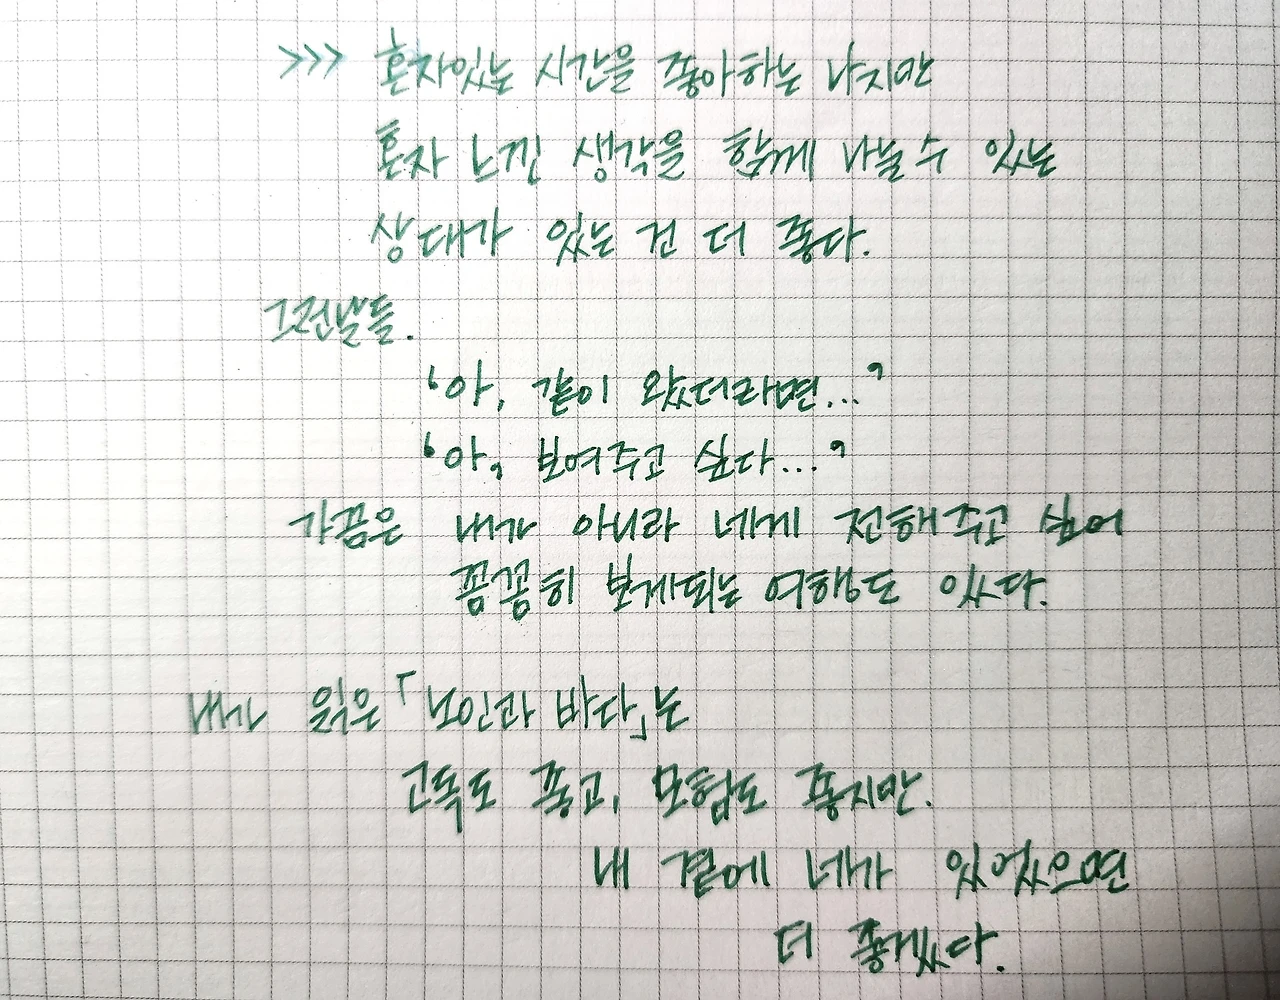 >>> 혼자있는 시간을 좋아하는 나지만
혼자 느낀 생각을 함께 나눌 수 있는
상대가 있는 건 더 좋다.
그런날들.
'아, 같이 왔더라면...'
'아, 보여주고 싶다...'
가끔은 내가 아니라 네게 전해주고 싶어
꼼꼼히 보게되는 여행도 있다.
내가 읽은 「노인과 바다」는
고독도 좋고, 모험도 좋지만.
내 곁에 네가 있었으면
더 좋겠다.